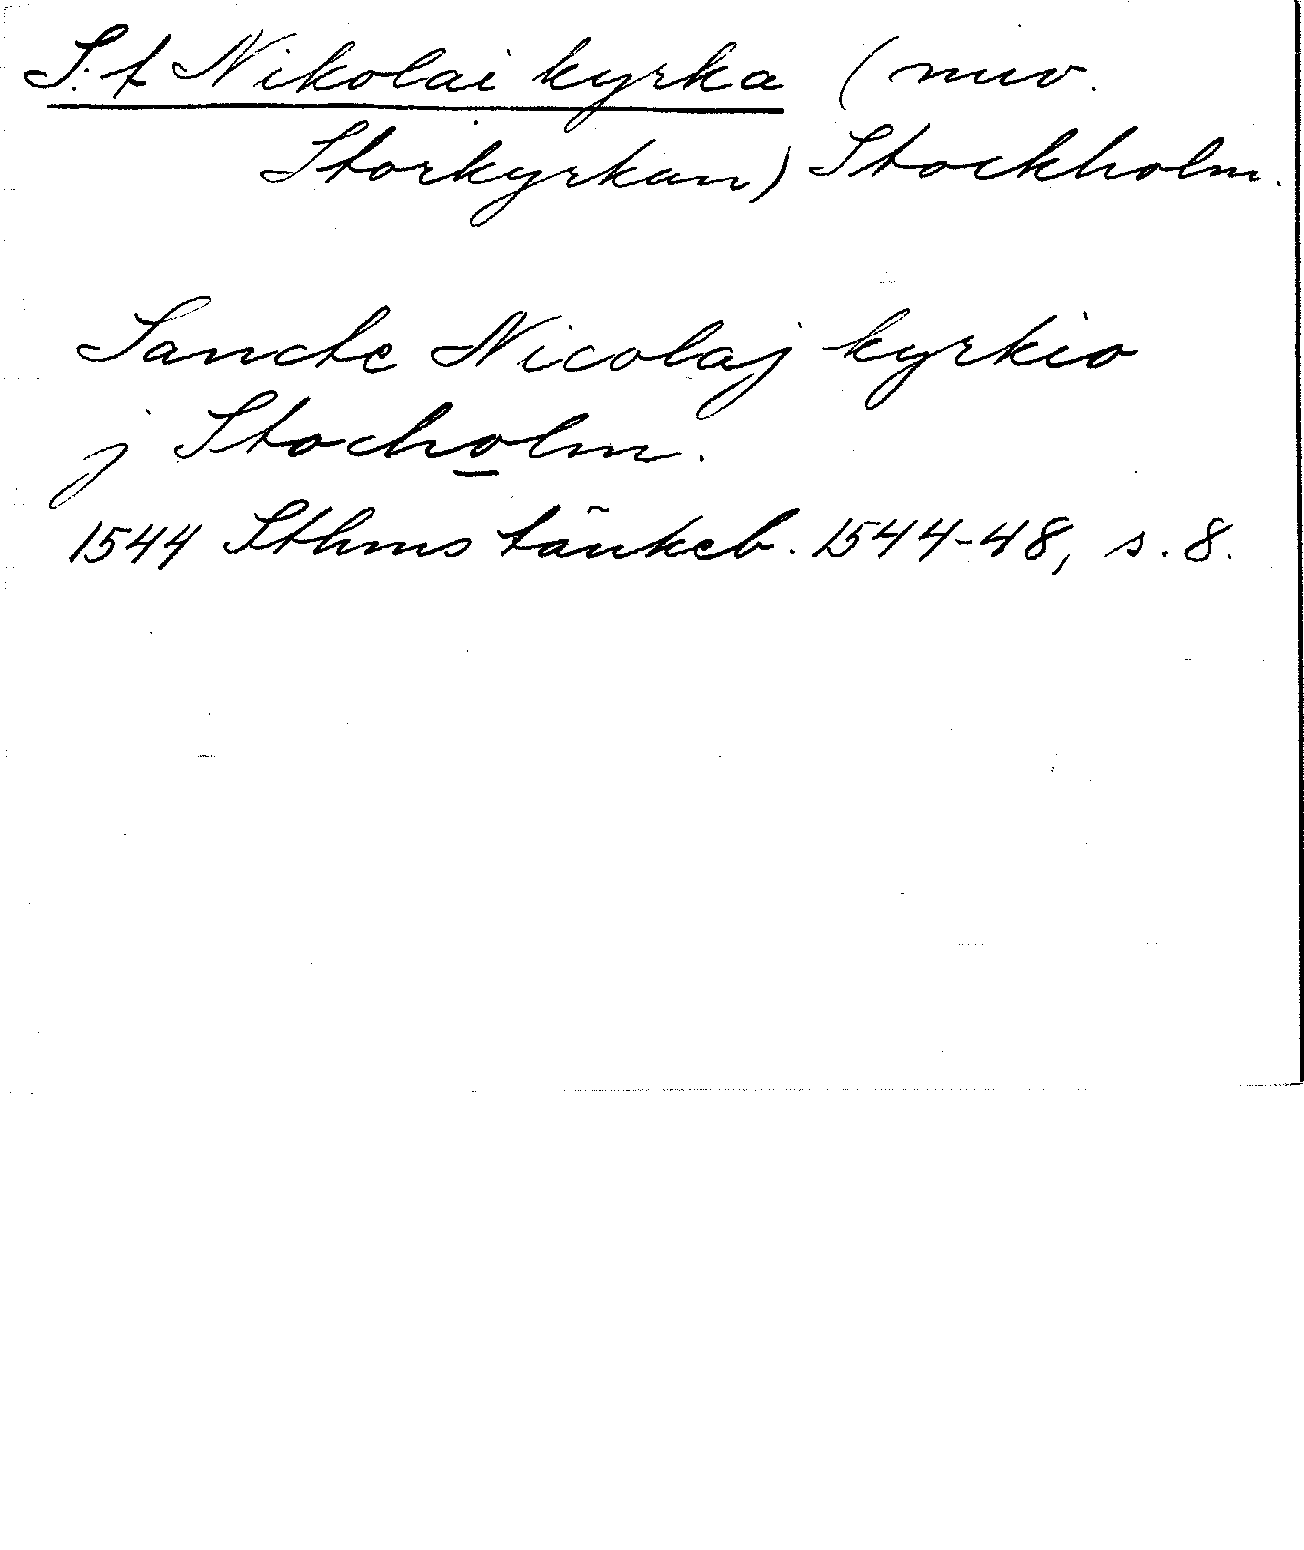 S:t Nikolai kyrka (nuv.
Storkyrkan) Stockholm.
Sancte Nicolaj kyrkio
j Stocholm.
1544 Sthms tänkeb. 1544-48, s. 8.